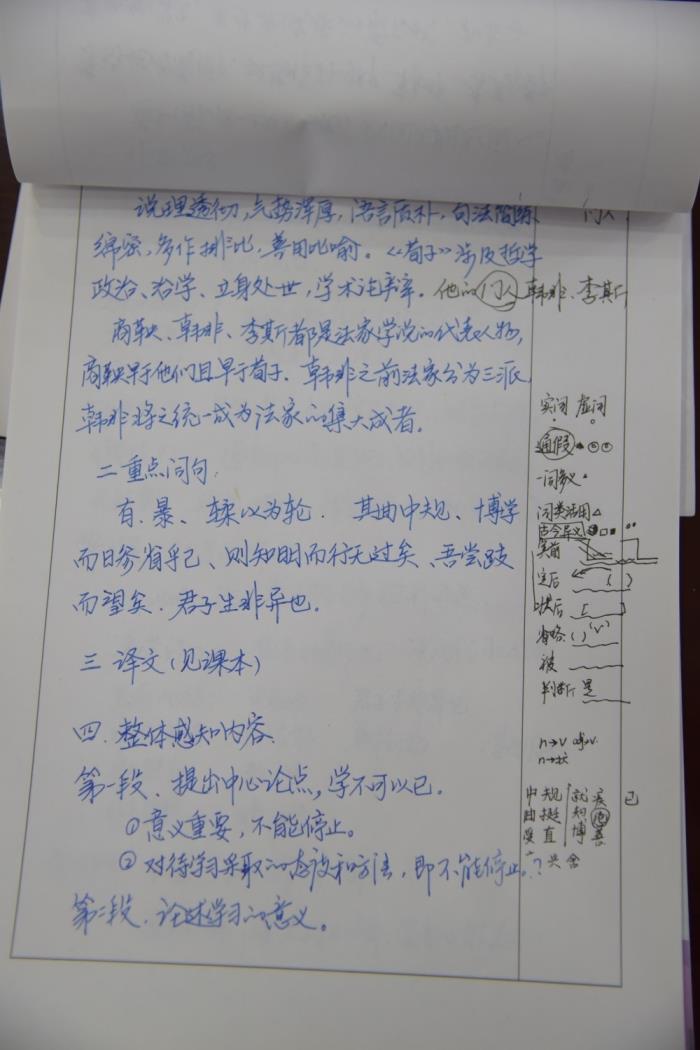 说理透彻,气势浑厚,语言质朴,句法简练
绵密,多作排比,善用比喻。《荀子》涉及哲学
政治、治学、立身处世,学术论辩。他的门人韩非、李斯
商鞅、韩非、李斯都是法家学说的代表人物,
商鞅早于他们且早于荀子.韩非之前法家分为三派
韩非将之统一成为法家的集大成者。
二重点词句.
有、暴、𫐓以为轮.其曲中规、博学
而日参省乎己、则知明而行无过矣、吾尝跂
而望矣.君子生非异也.
三 译文(见课本)
四.整体感知内容.
第一段、提出中心论点,学不可以已.
①意义重要,不能停止。
②对待学习采取的态度和方法,即不能停止。?
第二段.论述学习的意义。
门人
实词 虚词
通假
一词多义
词类活用△
古今异义
宾前
定后 ( )
状后 [ ]
省略()"v"
被
判断 是
n→v
n→状
中 规 就
曲 挺 知
受 直 博 善
舍
已